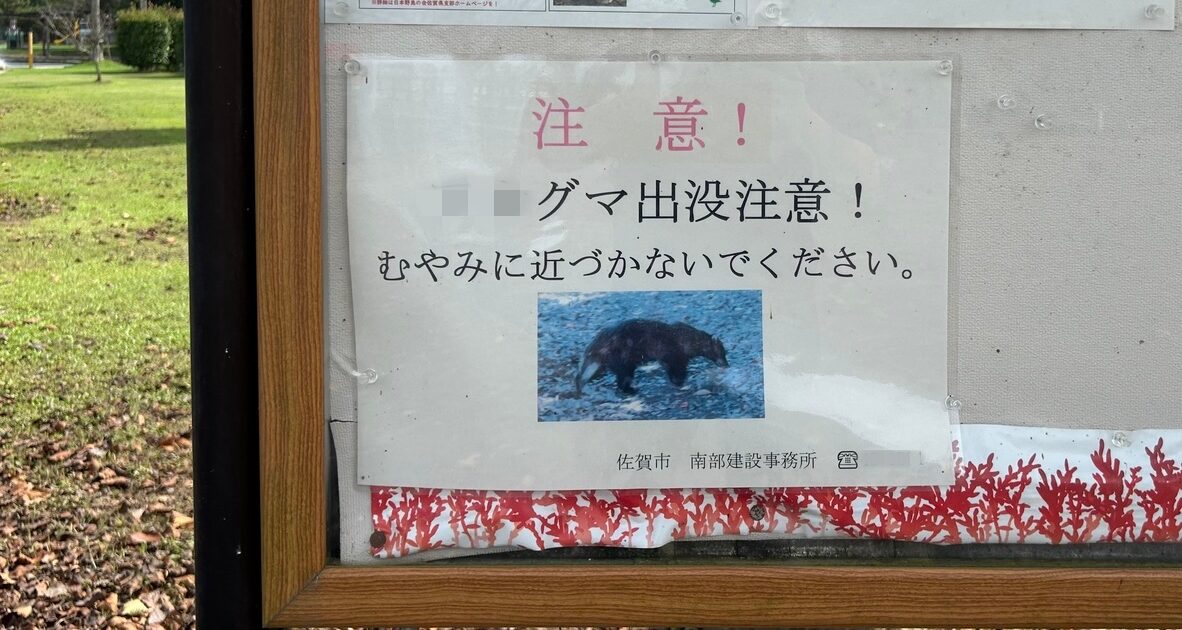 ※詳細は日本野鳥の会佐賀県支部ホームページを！
注　意！
グマ出没注意！
むやみに近づかないでください。
佐賀市　南部建設事務所　☎